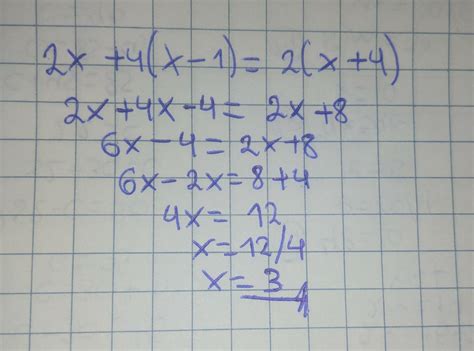 2x + 4(x - 1) = 2(x + 4)
2x + 4x - 4 = 2x + 8
6x - 4 = 2x + 8
6x - 2x = 8 + 4
4x = 12
x = 12/4
x = 3